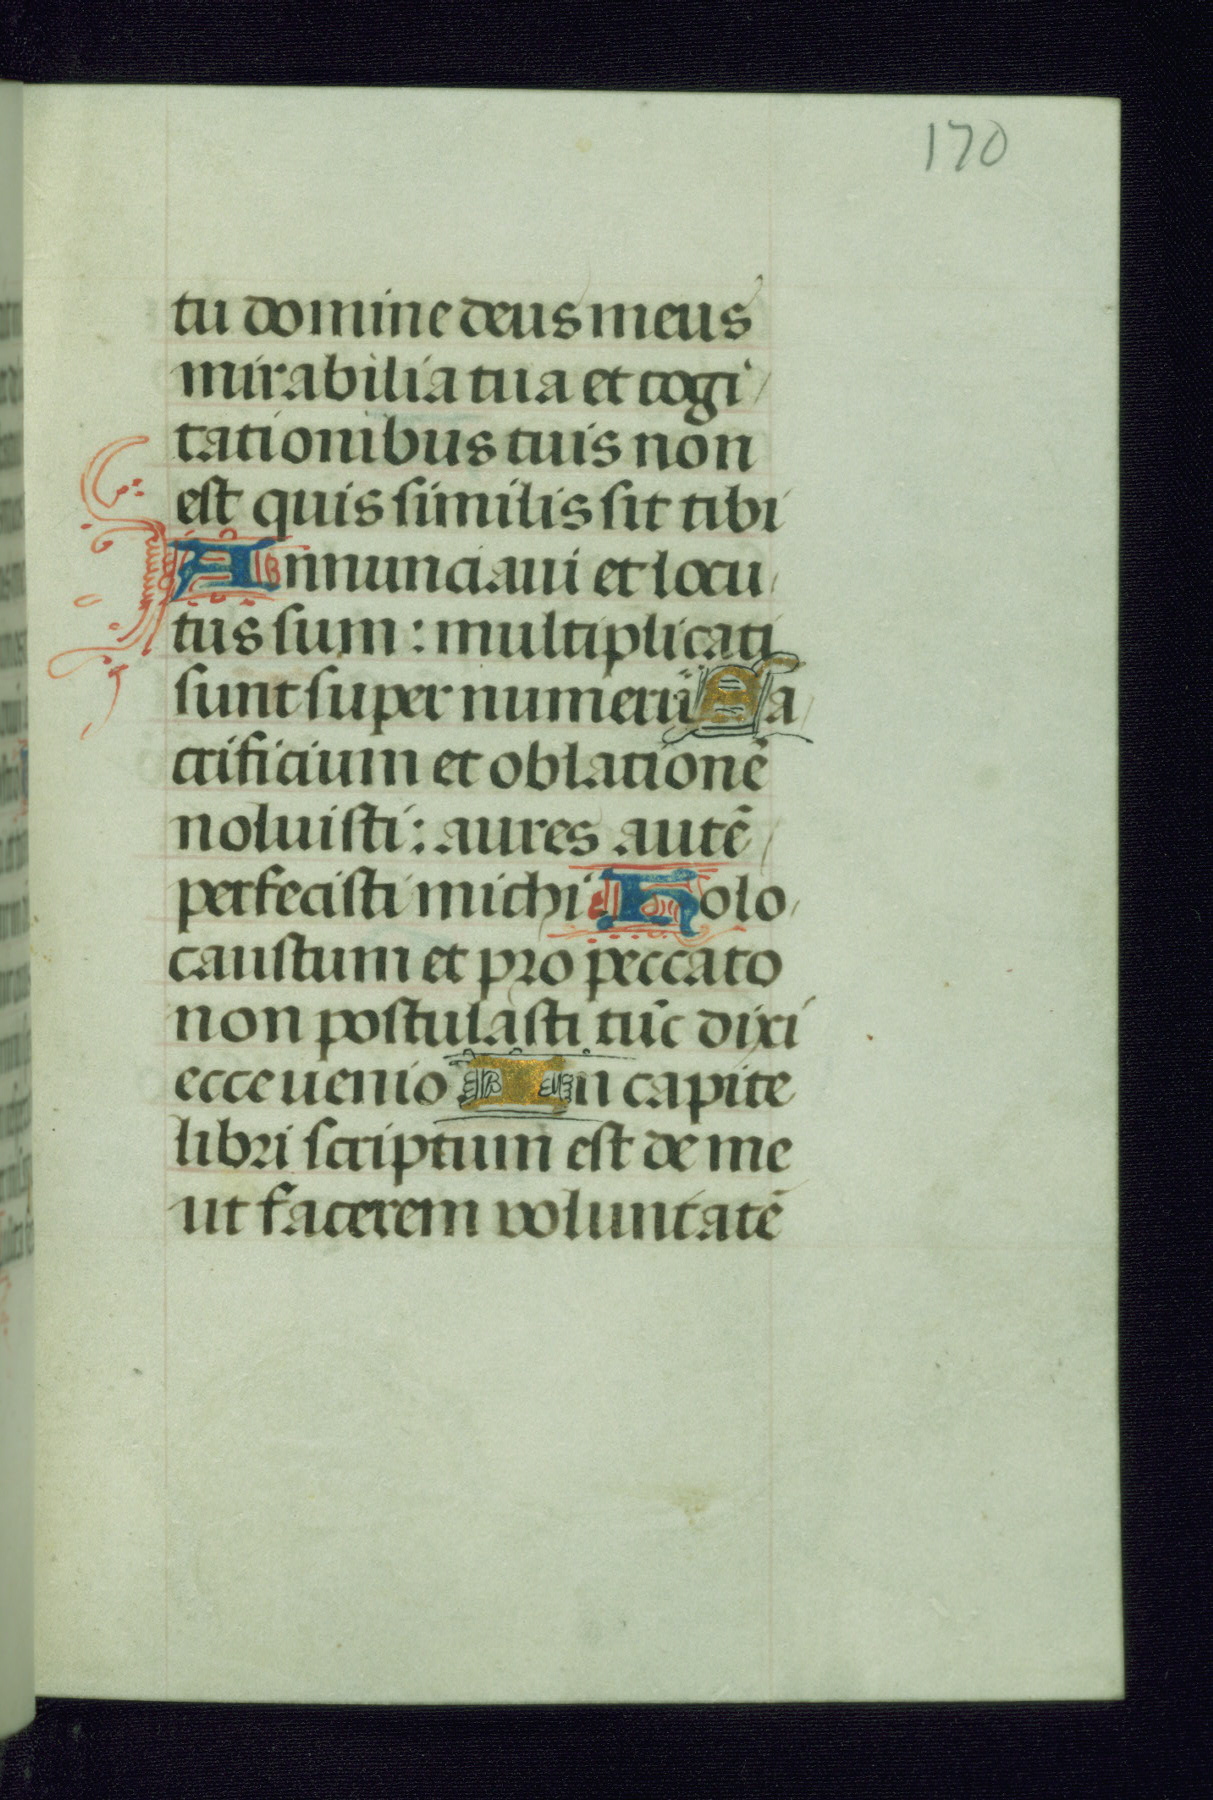 170
tu domine deus meus
mirabilia tua et cogi
tationibus tuis non
est quis similis sit tibi
Annunciaui et locu
tus sum : multiplicati
sunt super numerū Sa
crificium et oblationē
noluisti : aures autē
perfecisti michi Holo
caustum et pro peccato
non postulasti tūc dixi
ecce uenio In capite
libri scriptum est de me
ut facerem voluntatē